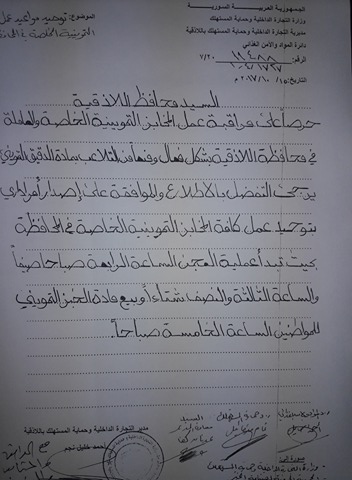 الجمهورية العربية السورية
وزارة التجارة الداخلية وحماية المستهلك
مديرية التجارة الداخلية وحماية المستهلك باللاذقية
دائرة المواد والامن الغذائي
الموضوع: توحيد مواعيد عمل
التموينية الخاصة
الرقم:
التاريخ: ٢٠١٧/١٠/١٥م
السيد محافظ اللاذقية
حرصاً على مراقبة عمل المخابز التموينية الخاصة والعاملة
في محافظة اللاذقية بشكل فعال ومنعاً من التلاعب بمادة الدقيق التمويني
يرجى التفضل بالاطلاع والموافقة على إصدار أمر إداري
بتوحيد عمل كافة المخابز التموينية الخاصة في المحافظة
بحيث تبدأ عملية العجن الساعة الرابعة صباحاً صيفاً
والساعة الثالثة والنصف شتاءاً وبيع مادة الخبز التمويني
للمواطنين الساعة الخامسة صباحاً.
مدير التجارة الداخلية وحماية المستهلك باللاذقية
أحمد خليل نجم
السيد
صورة إلى